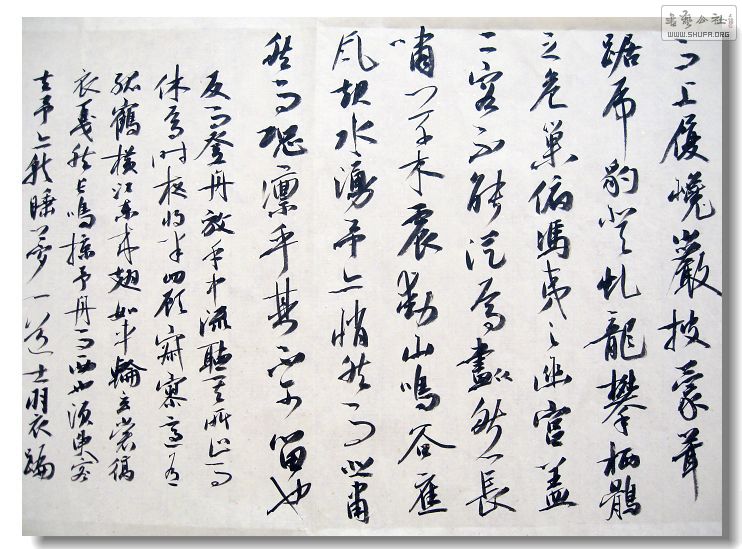 书艺公社
WWW.SHUFA.ORG
而上履巉巖披蒙茸
踞虎豹登虬龍攀栖鶻
之危巢俯馮夷之幽宮蓋
二客不能從焉畫然長
嘯草木震動山鳴谷應
風起水湧予亦悄然而悲肅
然而恐凛乎其不可留也
反而登舟放乎中流聽其所止而
休焉時夜將半四顧寂寥適有
孤鶴橫江東來翅如車輪玄裳縞
衣戛然長鳴掠予舟而西也須臾客
去予亦就睡夢一道士羽衣蹁